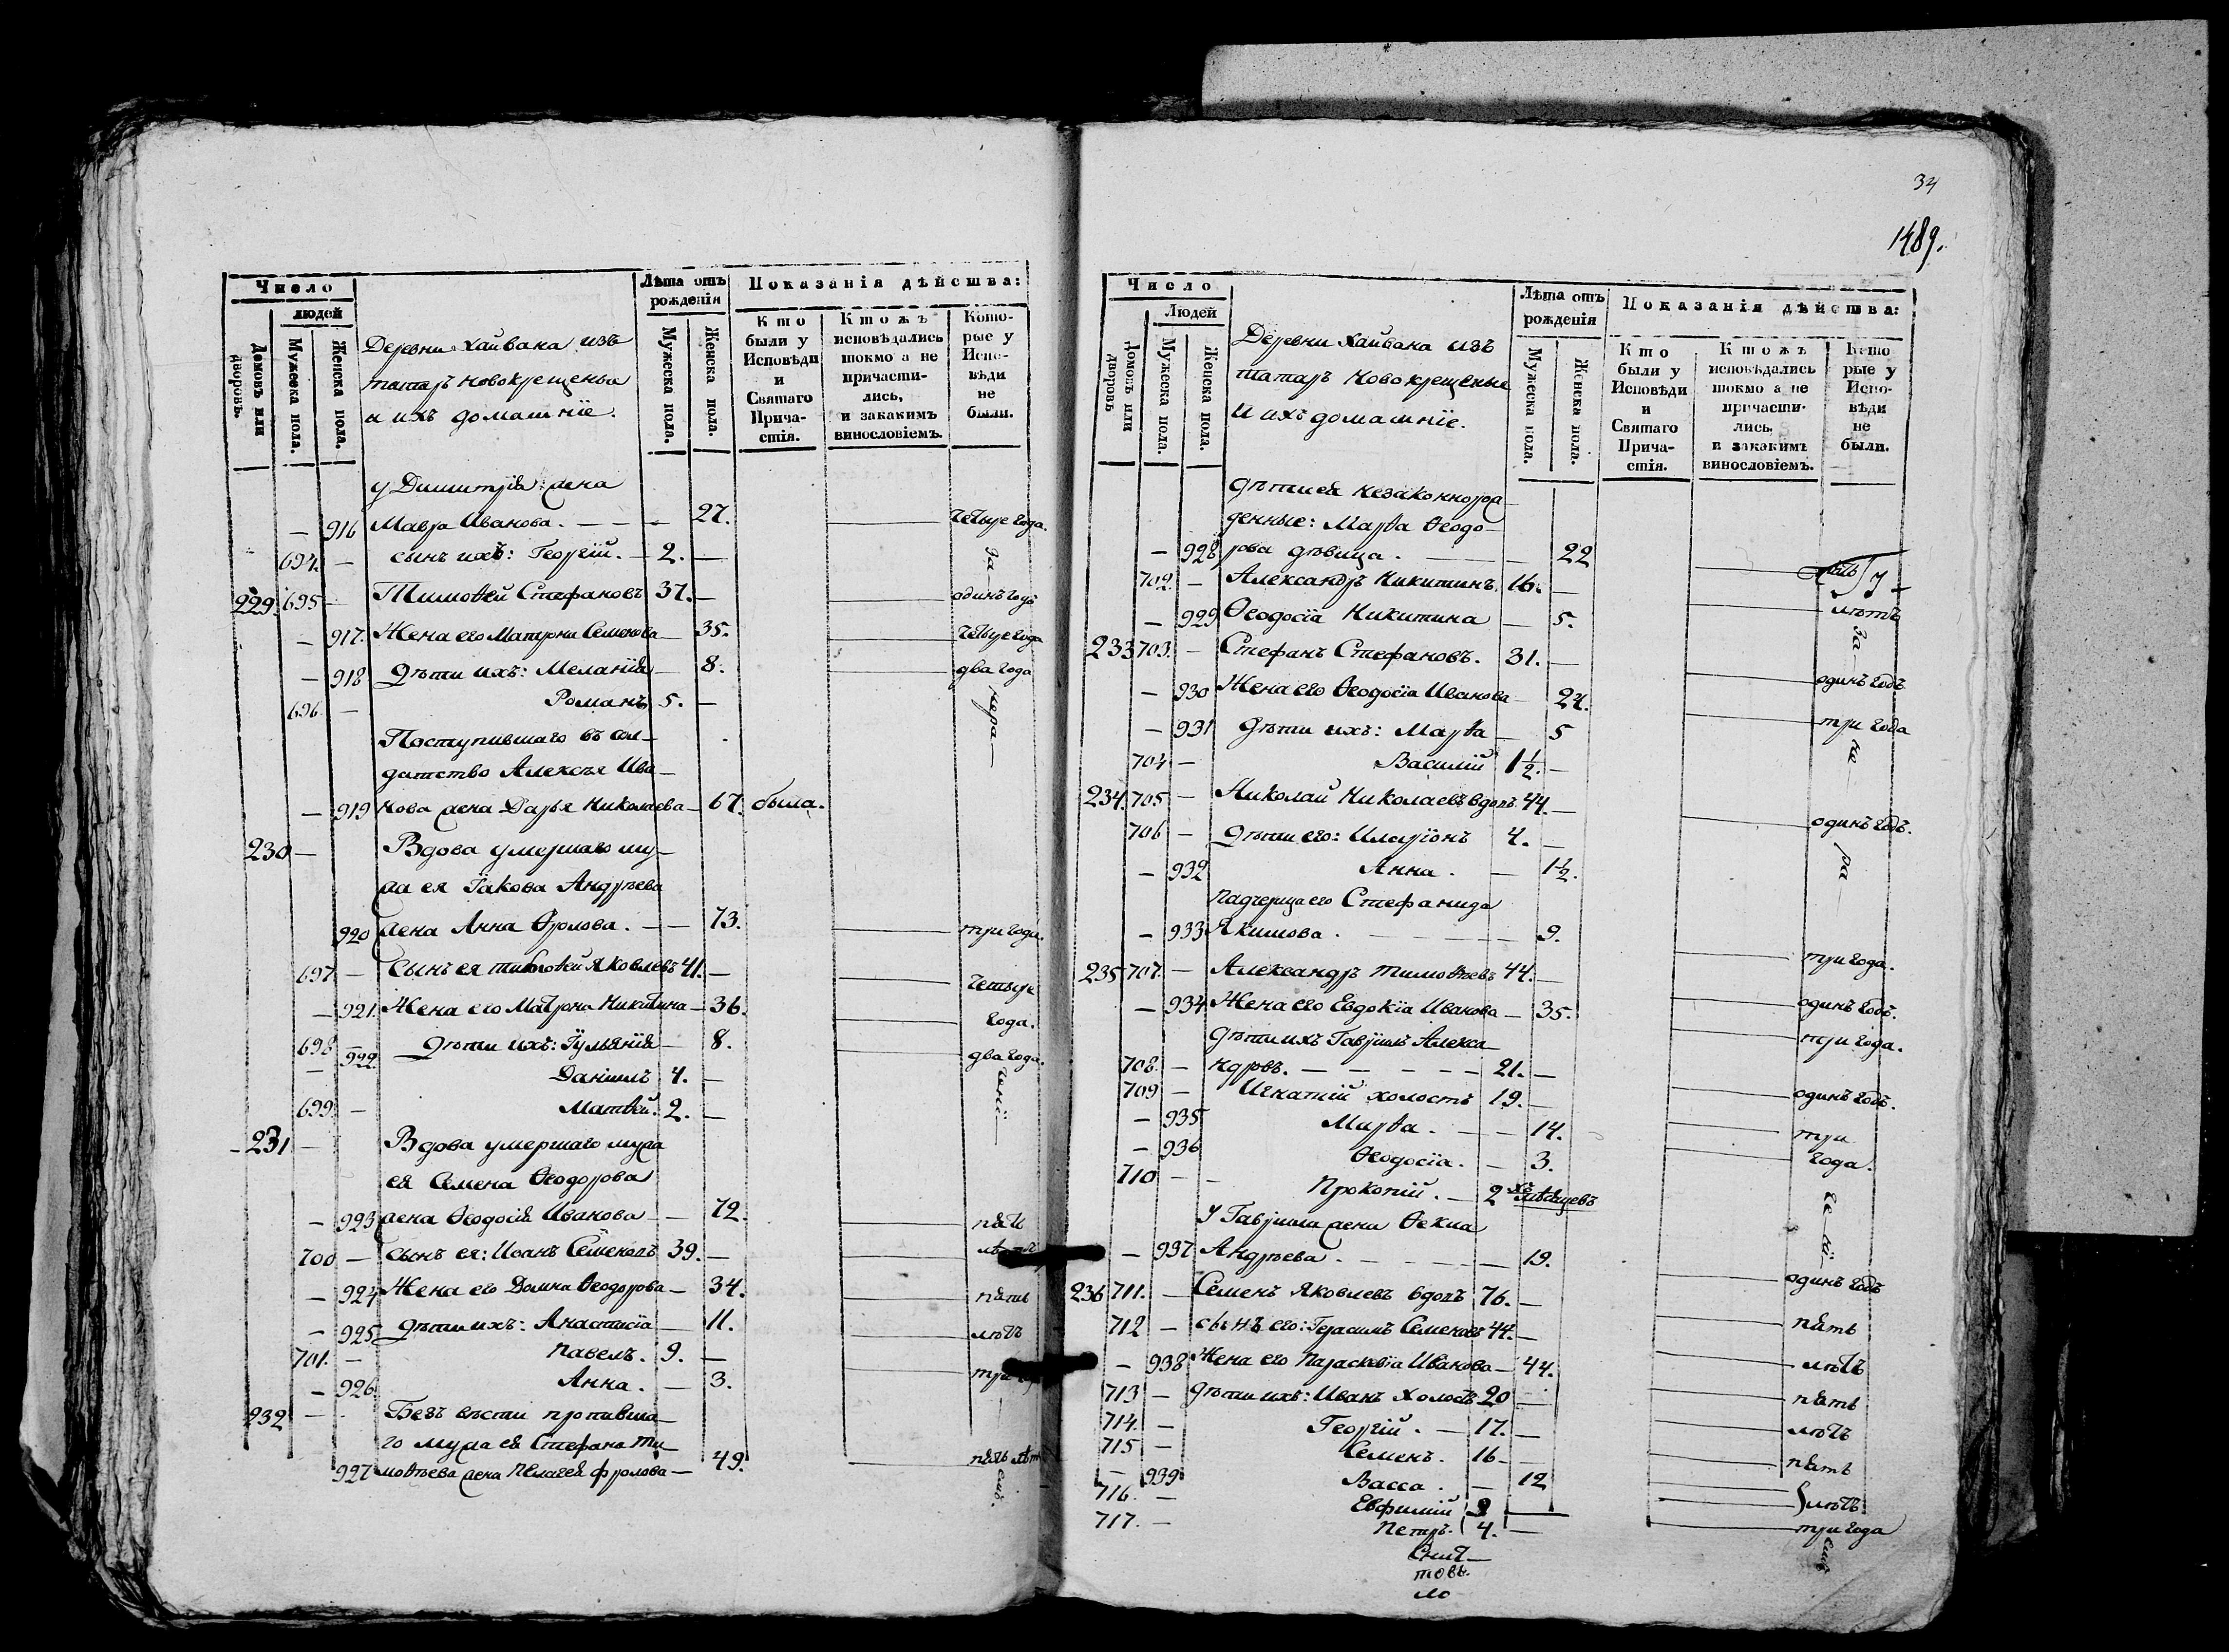 Число
людей
Домовъ или дворовъ.
Мужеска пола.
Женска пола.
Деревни Хайвана изъ
татаръ новокрещены
и ихъ домашніе.
Лѣта отъ рожденія
Мужеска пола.
Женска пола.
Показанія дѣйства:
Кто были у Исповѣди и Святаго Причастія.
Ктожъ исповѣдались токмо а не причастились, и закакимъ винословіемъ.
Которые у Исповѣди не были.
у Димитрія жена
— 916 Мавра Иванова. — — — 27. четыре года.
694. — сынъ ихъ: Георгій. — 2. —
229. 695 — Тимоѳей Стефановъ 37. — одинъ годъ
— 917. Жена его Матрона Семенова — 35. четыре года
— 918 Дѣти ихъ: Меланія — 8. два года
696 — Романъ 5. —
Поступившаго въ сол-
датство Алексѣя Ива-
— 919 нова жена Дарья Николаева — 67. была.
230 — Вдова умершаго му-
жа ея Іакова Андрѣева
920 жена Анна Фролова. — — 73. три года.
697 — Сынъ ея Тимоѳей Яковлевъ 41. —
— 921. Жена его Матрона Никитина — 36. четыре
года.
698 — 922. Дѣти ихъ: Іуліанія — 8. два года.
Даніилъ 4. —
699. — Матвѣй. 2. —
231 — Вдова умершаго мужа
ея Семена Ѳеодорова
— 923 жена Ѳеодосія Иванова — — 72. пять
700 — сынъ ея: Иоанъ Семеновъ 39. — лѣтъ
— 924 Жена его Домна Ѳеодорова — 34. пять
— 925 Дѣти ихъ: Анастасія — 11. лѣтъ
701. — Павелъ. 9. — три
— 926. Анна. — 3.
232 — Безъ вѣсти пропавша-
го мужа ея Стефана Ти-
927 моѳѣева жена Пелагея Фролова — 49. пять лѣтъ
34
1489.
Число
Людей
Домовъ или дворовъ
Мужеска пола.
Женска пола.
Деревни Хайвана изъ
татаръ новокрещеные
и ихъ домашніе.
Лѣта отъ рожденія
Мужеска пола.
Женска пола.
Показанія дѣйства:
Кто были у Исповѣди и Святаго Причастія.
Ктожъ исповѣдались токмо а не причастились, и закакимъ винословіемъ.
Которые у Исповѣди не были.
Дѣти ея незаконнорож-
денные: Марѳа Ѳеодо-
— 928 рова дѣвица. — — 22
702. — Александръ Никитинъ. 16. —
— 929 Ѳеодосія Никитина — 5. лѣтъ
233 703. — Стефанъ Стефановъ. 31. —
— 930 Жена его Ѳеодосія Иванова — 24. одинъ годъ
— 931 Дѣти ихъ: Марѳа — 5 три года
704 — Василій 1 1/2. —
234. 705 — Николай Николаевъ вдовъ 44. —
706 — Дѣти его: Иларіонъ 4. — одинъ годъ.
— 932 Анна. — 1 1/2.
падчерица его Стефанида
— 933 Якимова. — — — 9.
235 707. — Александръ Тимоѳѣевъ 44. — три года.
— 934 Жена его Евдокія Иванова — 35. одинъ годъ.
Дѣти ихъ Гавріилъ Алекса-
708. — ндровъ. — — — — 21. — три года.
709 — Игнатій холостъ 19. — одинъ годъ.
— 935 Марѳа. — — 14. три
— 936 Ѳеодосія. — 3. года.
710 — — Прокопій. — 2 хъ мѣсяцевъ
У Гавріила жена Ѳекла
— 937 Андрѣева. — — — 19.
236 711. — Семенъ Яковлевъ вдовъ 76. — одинъ годъ
712 — сынъ его: Герасимъ Семеновъ 44. — пять
— 938 Жена его Параскевія Иванова — 44. лѣтъ
713 — Дѣти ихъ: Иванъ холостъ 20 — пять
714. — Георгій. — 17. — лѣтъ
715 — Семенъ. 16 — пять
— 939 Васса. — 12 лѣтъ
716. — Евфимій 9 —
717. — Петръ. 4. — три года